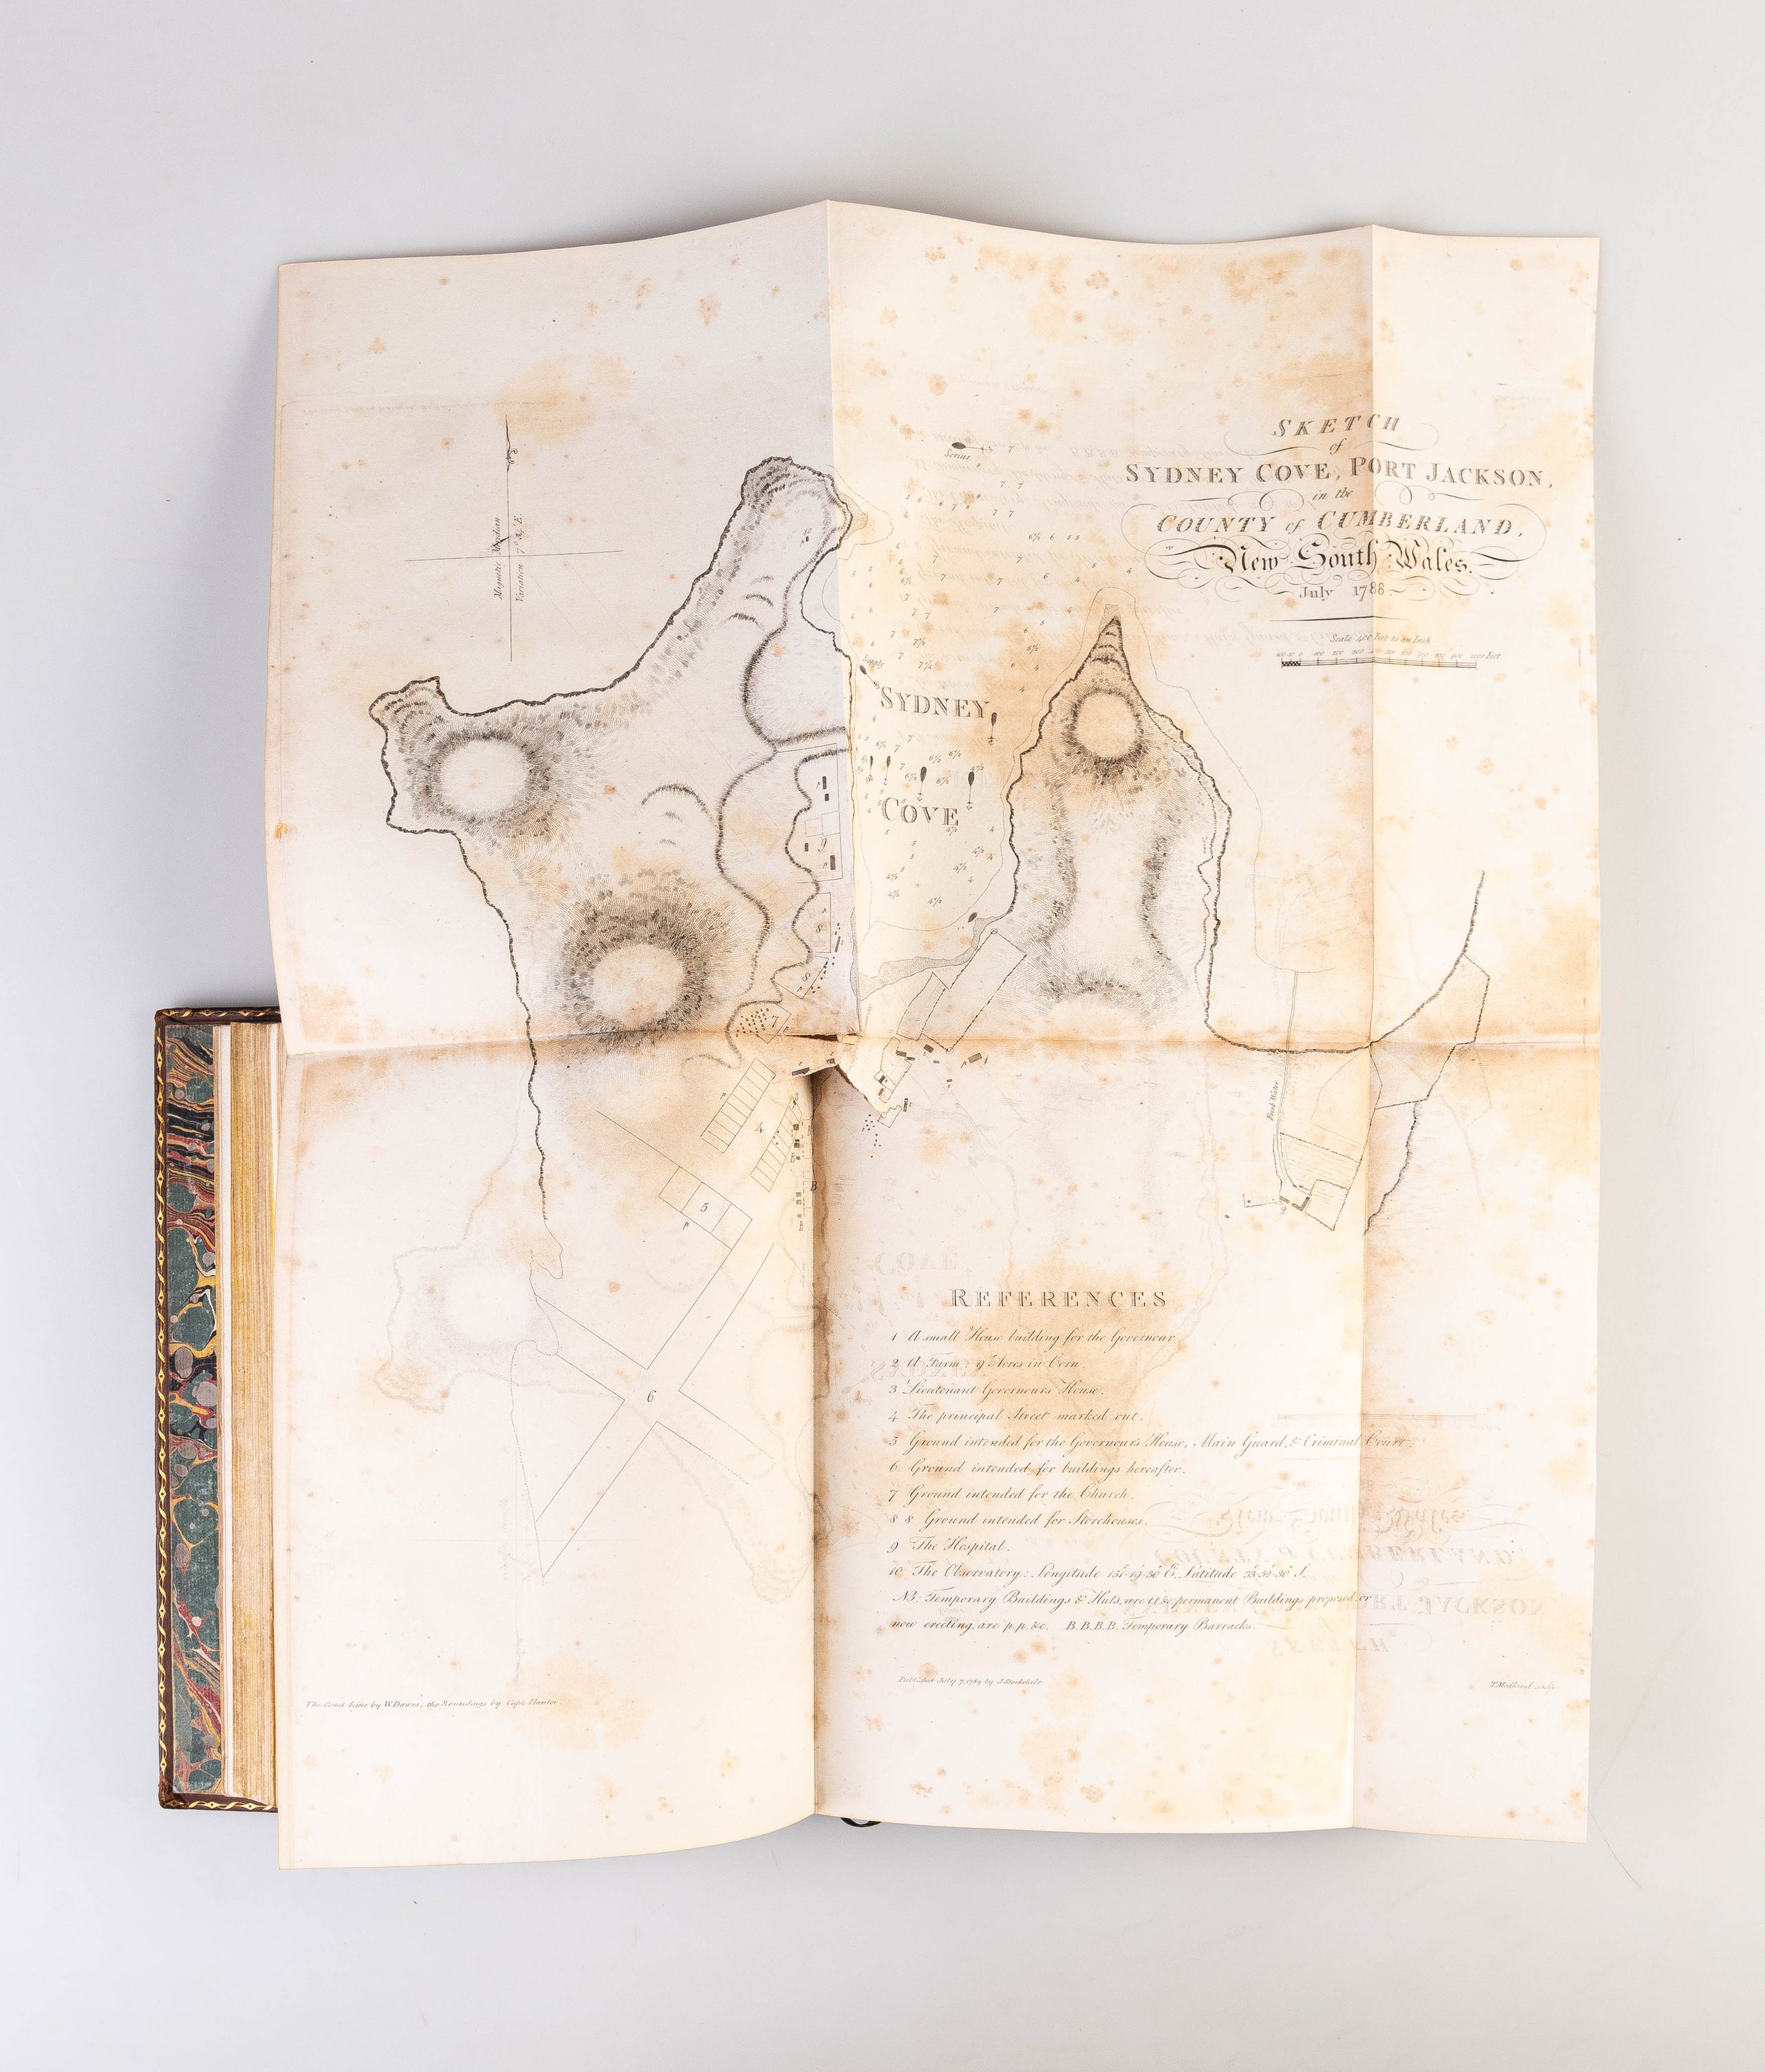 SKETCH
of
SYDNEY COVE, PORT JACKSON,
in the
COUNTY of CUMBERLAND,
New South Wales.
July 1788.
Scale 400 Feet to an Inch
Magnetic Meridian
Variation
Sirius
Supply
SYDNEY
COVE
10
9
8
8
7
4
5
B
6
Fresh Water
REFERENCES
1 A small House building for the Governour
2 A Farm: 9 Acres in Corn.
3 Lieutenant Governours House.
4 The principal Street marked out.
5 Ground intended for the Governour's House, Main Guard, & Criminal Court.
6 Ground intended for buildings hereafter.
7 Ground intended for the Church.
8 8 Ground intended for Storehouses.
9 The Hospital.
10 The Observatory: Longitude 151°·19'·30" E. Latitude 33°·52'·30" S.
NB: Temporary Buildings & Huts, are t.t. &c permanent Buildings proposed or
now erecting, are p.p. &c. B.B.B.B. Temporary Barracks.
Published July 7, 1789 by J. Stockdale.
T. Medland sculp.
The Coast Line by W. Dawes, the Soundings by Capt. Hunter